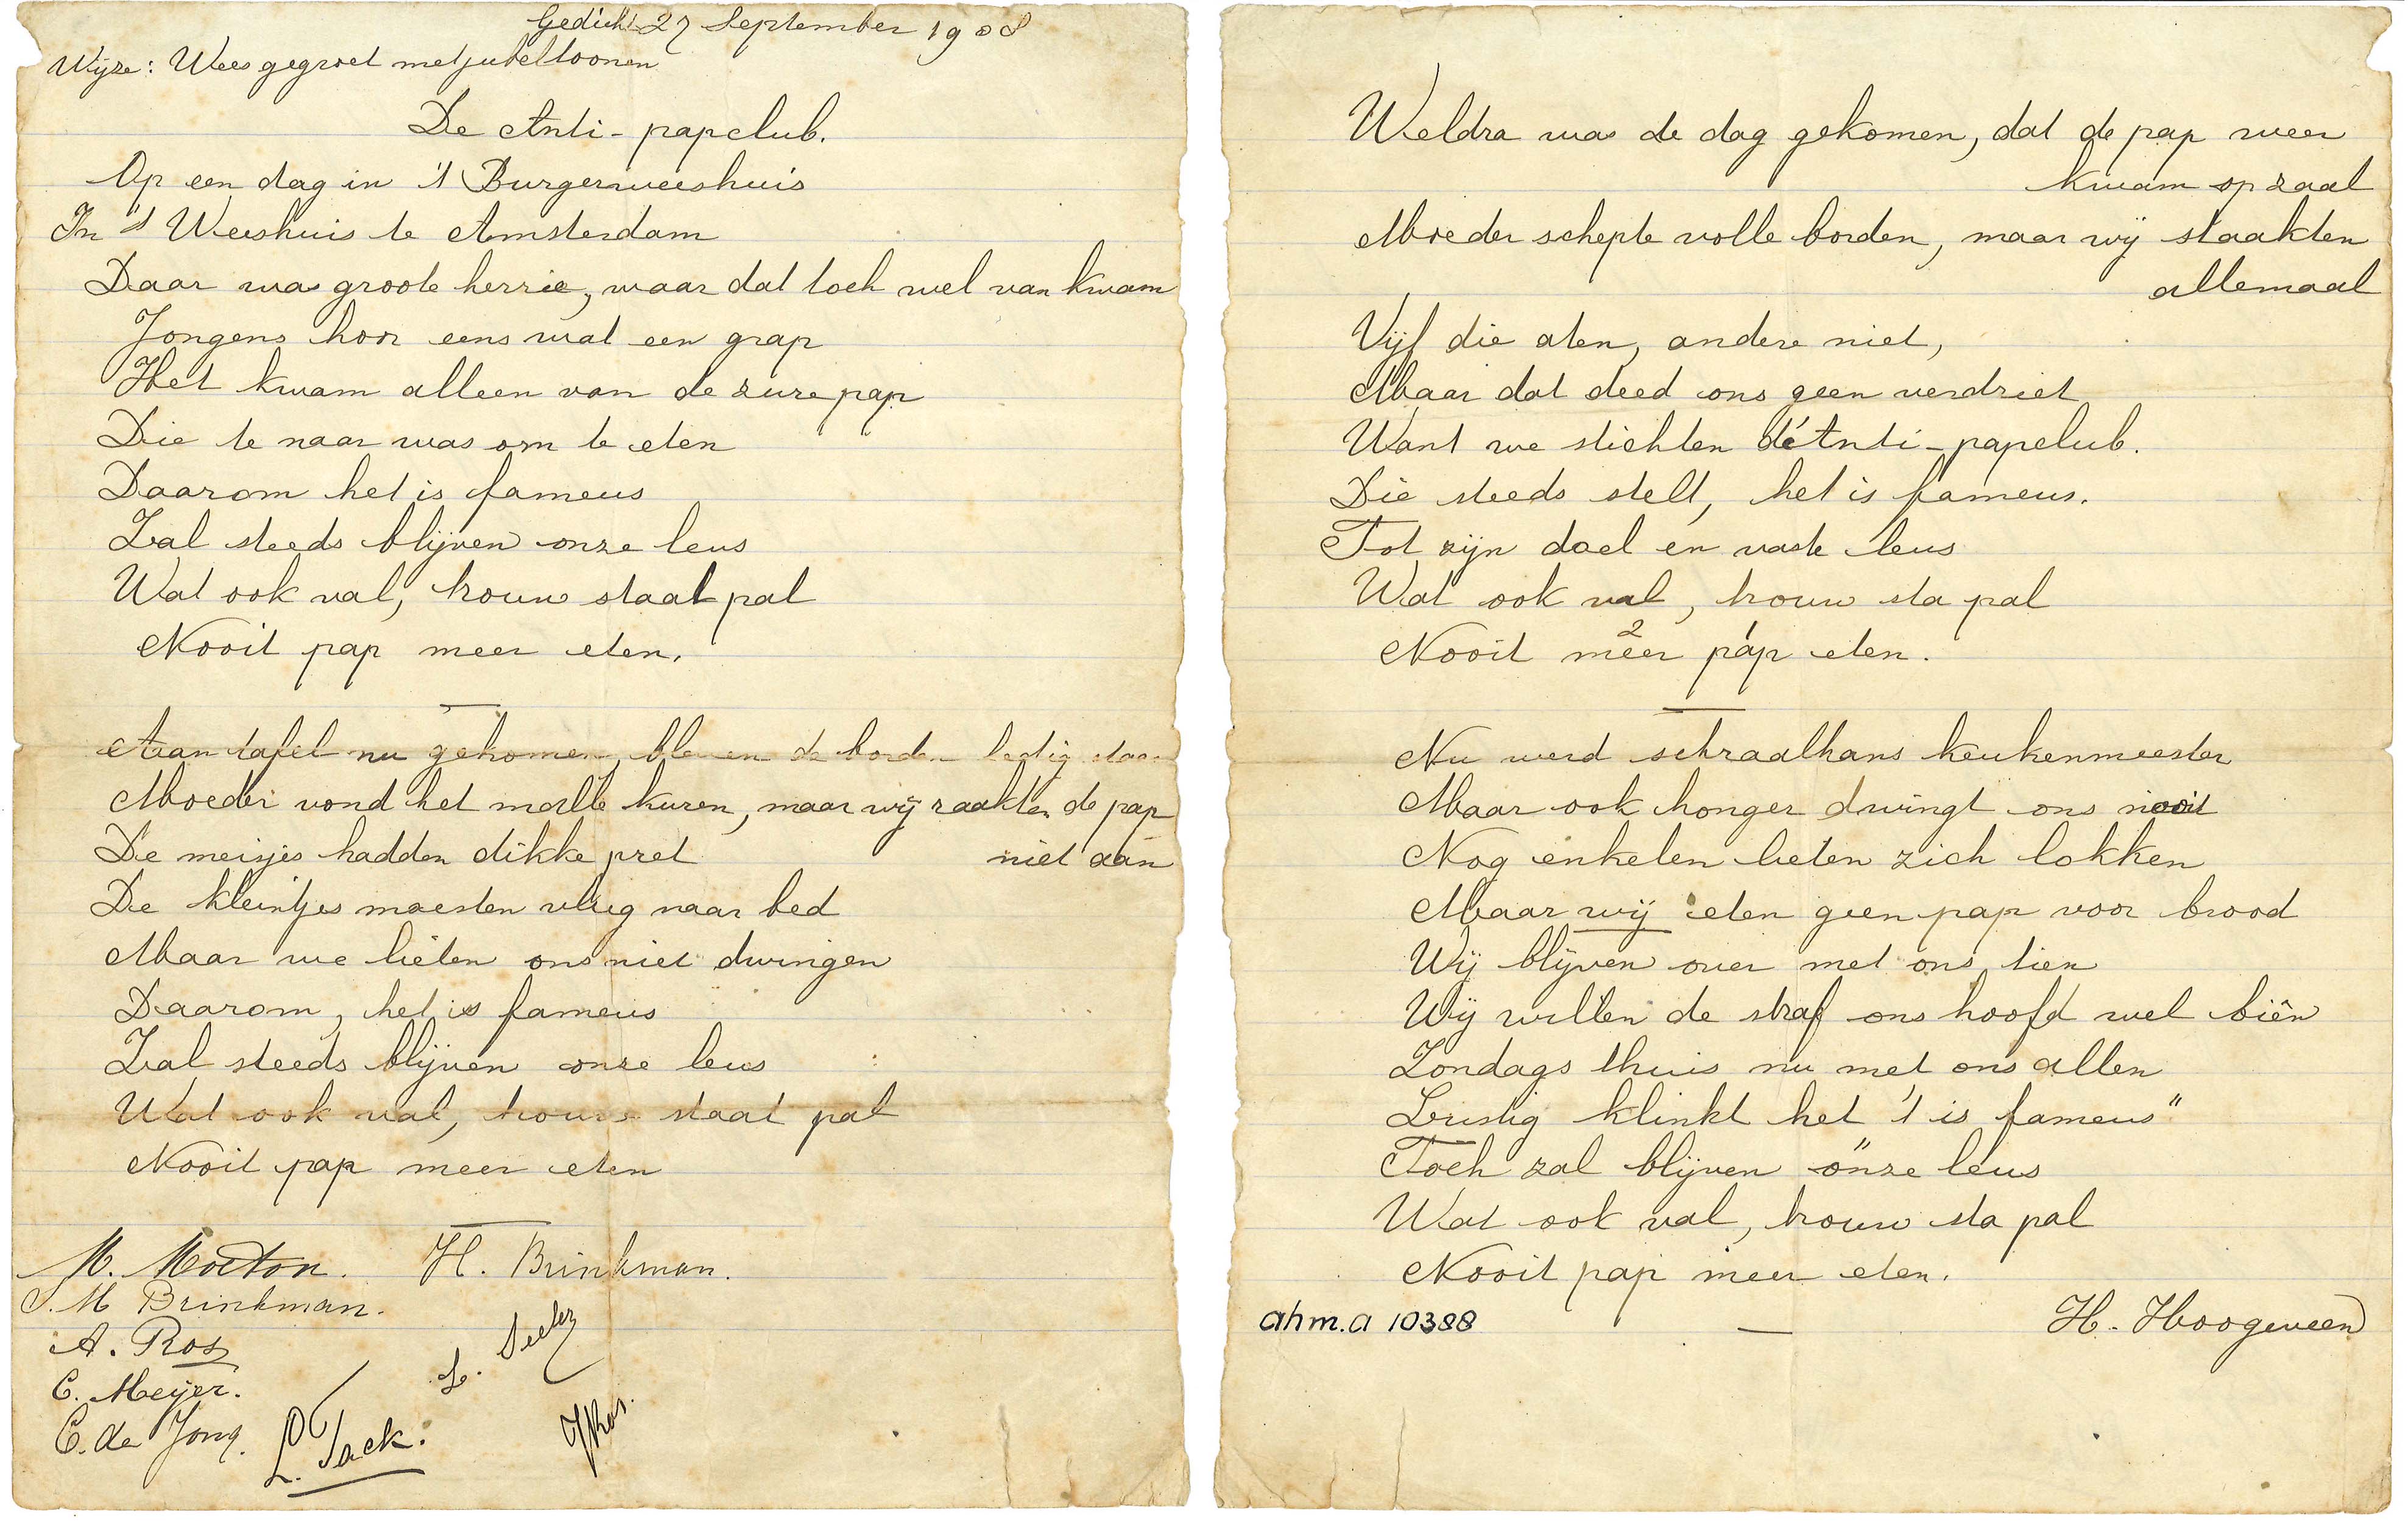 Gedicht 27 September 1908
Wijze: Wees gegroet met jubeltoonen
De Anti-papclub.
Op een dag in 't Burgerweeshuis
In 't Weeshuis te Amsterdam
Daar was groote herrie, waar dat toch wel van kwam
Jongens hoor eens wat een grap
Het kwam alleen van de zure pap
Die te naar was om te eten
Daarom het is fameus
Zal steeds blijven onze leus
Wat ook val, trouw staat pal
Nooit pap meer eten.
Aan tafel nu gekomen, bleven de borden ledig staan
Moeder vond het malle kuren, maar wij raakten de pap
niet aan
De meisjes hadden dikke pret
De kleintjes moesten vlug naar bed
Maar we lieten ons niet dwingen
Daarom, het is fameus
Zal steeds blijven onze leus
Wat ook val, trouw staat pal
Nooit pap meer eten
M. Morton. H. Brinkman.
J. M Brinkman.
A. Ros
C. Meijer.
C. de Jong.
L. Tack.
Weldra was de dag gekomen, dat de pap weer
kwam op zaal
Moeder schepte volle borden, maar wij staakten
allemaal
Vijf die aten, andere niet,
Maar dat deed ons geen verdriet
Want we stichten d'Anti-papclub.
Die steeds stelt, het is fameus.
Tot zijn doel en vaste leus
Wat ook val, trouw sta pal
Nooit meer 2 pap 1 eten.
Nu werd schraalhans keukenmeester
Maar ook honger dwingt ons nooit
Nog enkelen lieten zich lokken
Maar wij eten geen pap voor brood
Wij blijven over met ons tien
Wij willen de straf ons hoofd wel biên
Zondags thuis nu met ons allen
Lustig klinkt het 't is fameus"
Toch zal blijven "onze leus
Wat ook val, trouw sta pal
Nooit pap meer eten.
H. Hoogeveen
ahm.a 10388